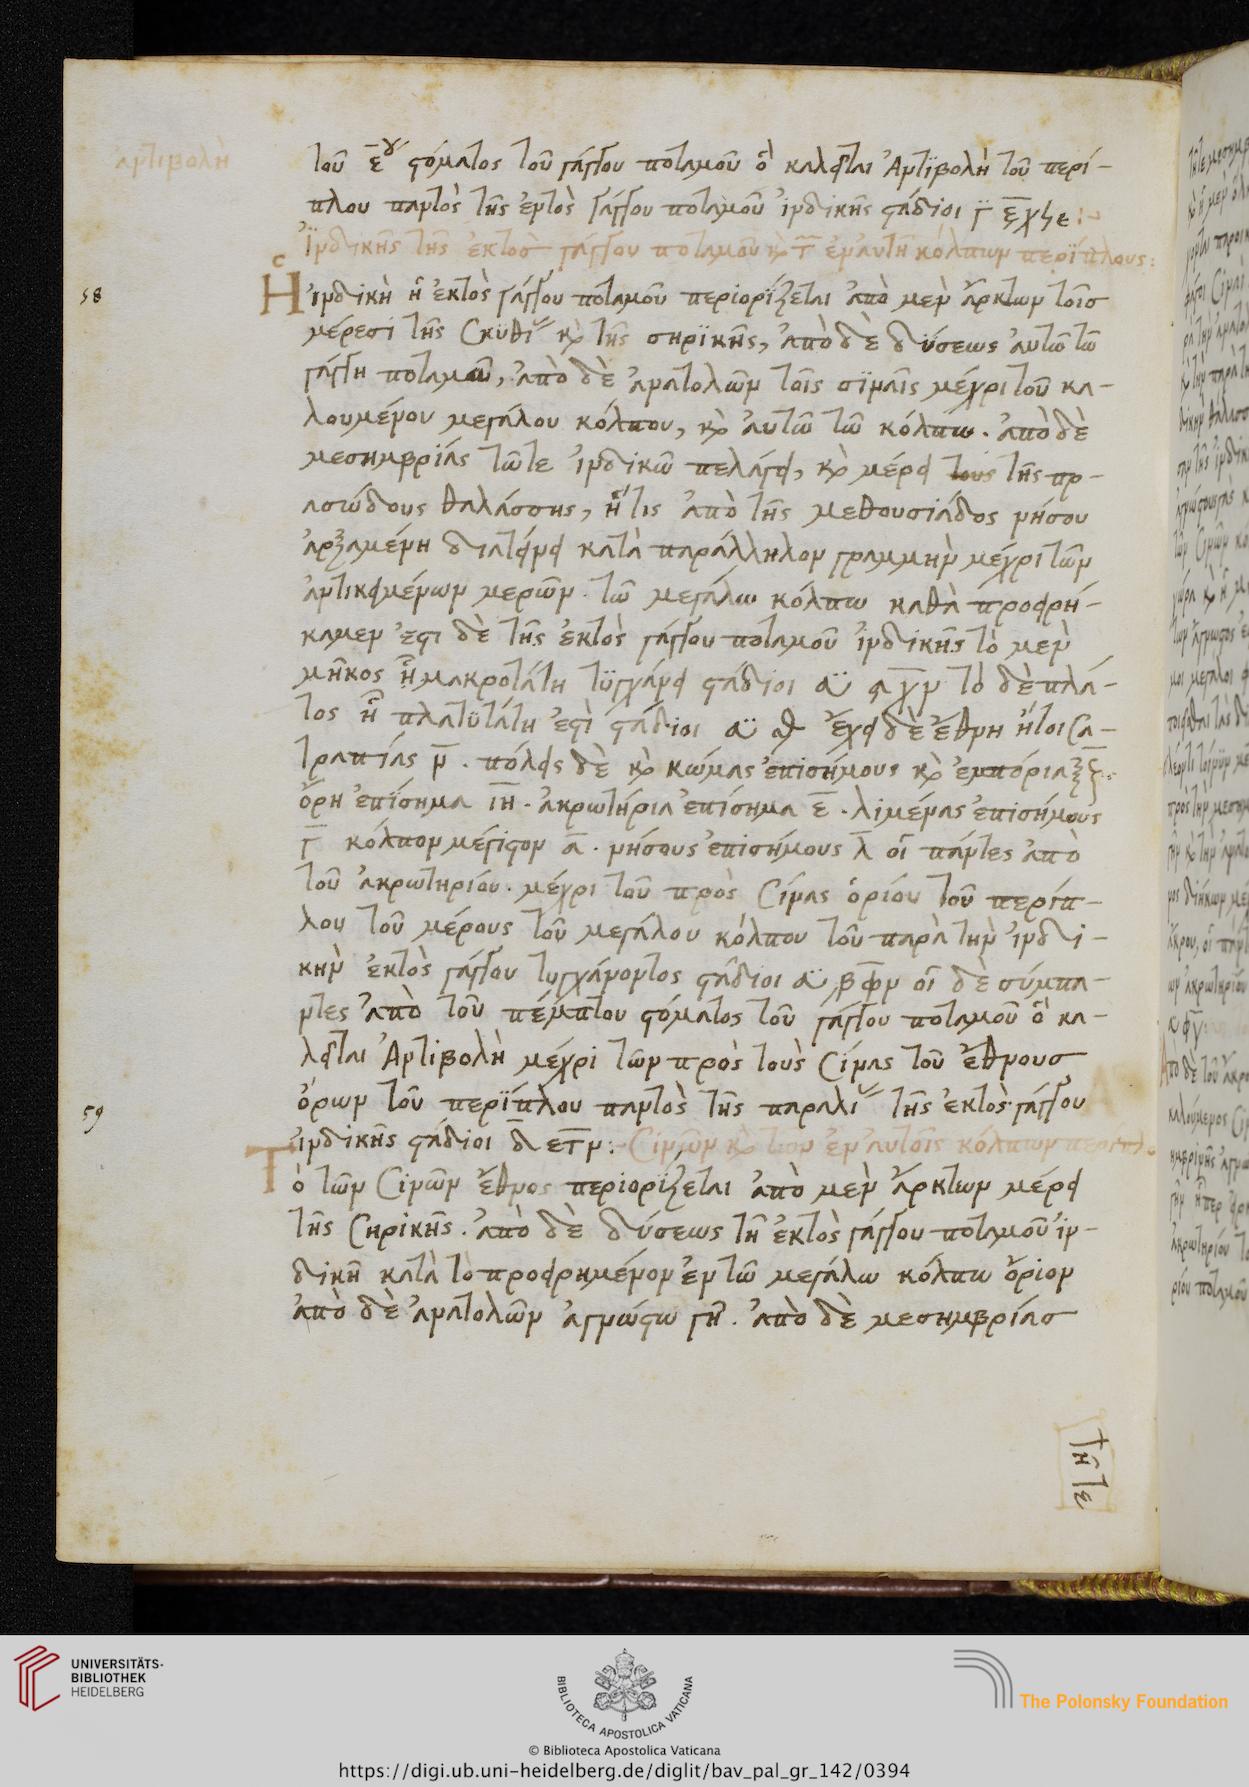 ἀντιβολὴ
τοῦ ε̅ου στόματος τοῦ γάγγου ποταμοῦ ὃ καλεῖται Ἀντϊβολὴ τοῦ περί-
πλου παντὸς τῆς ἐντὸς γάγγου ποταμοῦ ἰνδικῆς στάδιοι
ἰνδικῆς τῆς ἐκτοσ γάγγου ποταμοῦ κὶ τῶν ἐν αυτῆ κόλπων περΐπλους:
58
Ἡ ἰνδικὴ ἡ ἐκτὸς γάγγου ποταμοῦ περιορΐζεται ἀπὸ μεν ἄρκτων τοῖσ
μέρεσι τῆς Σκϋθίας κὶ τῆς σηρϊκῆς, ἀπὸ δὲ δΰσεως αυτῶ τῶ
γάγγη ποταμῶ, ἀπὸ δὲ ἀνατολῶν τοῖς σϊναῖς μέχρι τοῦ κα-
λουμένου μεγάλου κόλπου, κὶ αυτῶ τῶ κόλπω. ἀπὸ δὲ
μεσημβρίας τῶτε ἰνδικῶ πελάγει, κὶ μέρει τοὺς τῆς πρ-
ασώδους θαλάσσης, ἥτις ἀπὸ τῆς μεθουσιάδος νήσου
ἀρξαμένη διατείνει κατὰ παράλληλον γραμμὴν μέχρι τῶν
ἀντικειμένων μερῶν τῶ μεγάλω κόλπω καθὰ προειρή-
καμεν ἐστι δὲ τῆς ἐκτὸς γάγγου ποταμοῦ ἰνδικῆς τὸ μεν
μῆκος ἧ μακροτάτη τϋγχάνει στάδιοι τὸ δὲ πλά-
τος ἧ πλατϋτάτη ἐστὶ στάδιοι ἔχει δὲ ἔθνη ἤτοι Σα-
τραπίας ν̅. πόλεις δὲ κὶ κώμας ἐπισήμους κὶ ἐμπόρια
ὄρη ἐπίσημα ι̅η̅. ἀκρωτήρια ἐπίσημα ε̅. λιμένας ἐπισήμους
γ̅ κόλπον μέγιστον α̅. νήσους ἐπισήμους λ̅ οἱ πάντες ἀπὸ
τοῦ ἀκρωτηρίου. μέχρι τοῦ πρὸς Σίνας ὁρίου τοῦ περίπ-
λου τοῦ μέρους τοῦ μεγάλου κόλπου τοῦ παρὰ τὴν ἰνδι-
κὴν ἐκτὸς γάγγου τυγχάνοντος στάδιοι οἱ δὲ σύμπα-
ντες ἀπὸ τοῦ πέμπτου στόματος τοῦ γάγγου ποταμοῦ ὃ κα-
λεῖται Ἀντιβολὴ μέχρι τῶν πρὸς τοὺς Σίνας τοῦ ἔθνουσ
ὅρων τοῦ περΐπλου παντὸς τῆς παραλίας τῆς ἐκτὸς γάγγου
59
ἰνδικῆς στάδιοι : Σινῶν κὶ των ἐν αυτοῖς κόλπων περίπλο
Τὸ τῶν Σινῶν ἔθνος περιορΐζεται ἀπὸ μεν ἄρκτων μέρει
τῆς Σηρικῆς. ἀπὸ δὲ δύσεως τῆ ἐκτὸς γάγγου ποταμοῦ ἰν-
δικῆ κατὰ τὸ προειρημένον ἐν τῶ μεγάλω κόλπω ὅριον
ἀπὸ δὲ ἀνατολῶν ἀγνώστω γῆ. ἀπὸ δὲ μεσημβρίασ
τῆτε
UNIVERSITÄTS-
BIBLIOTHEK
HEIDELBERG
BIBLIOTECA APOSTOLICA VATICANA
The Polonsky Foundation
© Biblioteca Apostolica Vaticana
https://digi.ub.uni-heidelberg.de/diglit/bav_pal_gr_142/0394